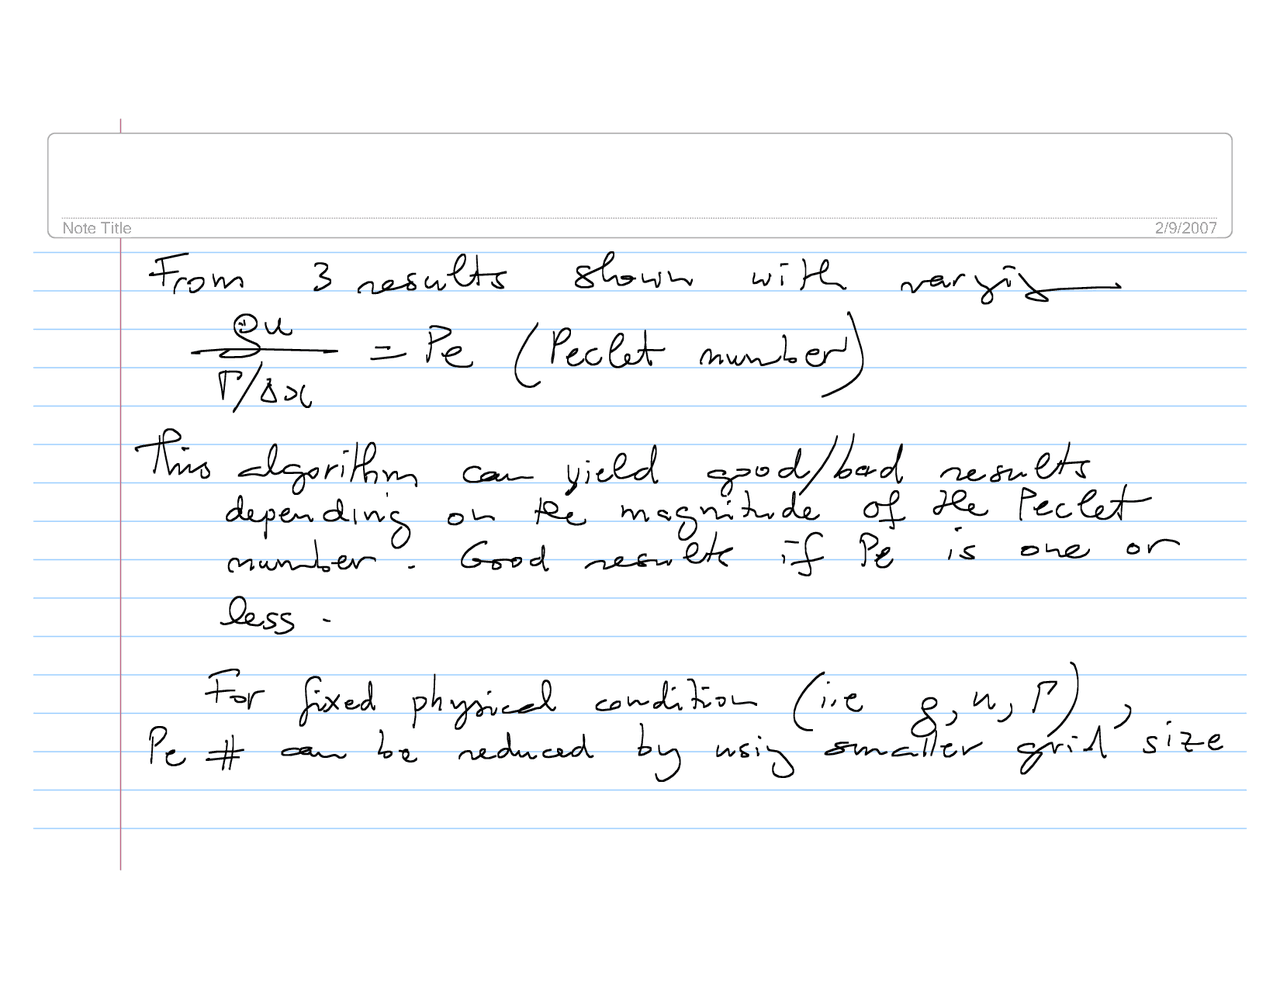 Note Title
2/9/2007
From 3 results shown with varying
ρu / Γ/Δx = Pe (Peclet number)
This algorithm can yield good/bad results
depending on the magnitude of the Peclet
number. Good results if Pe is one or
less.
For fixed physical condition (i.e ρ, u, Γ),
Pe # can be reduced by using smaller grid size